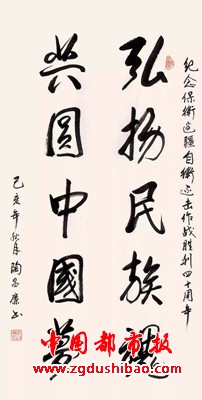 纪念保衛边疆自衛还击作战胜利四十周年
弘扬民族魂
共圓中國夢
己亥年秋月陶昌廉书
中国都市报
www.zgdushibao.com